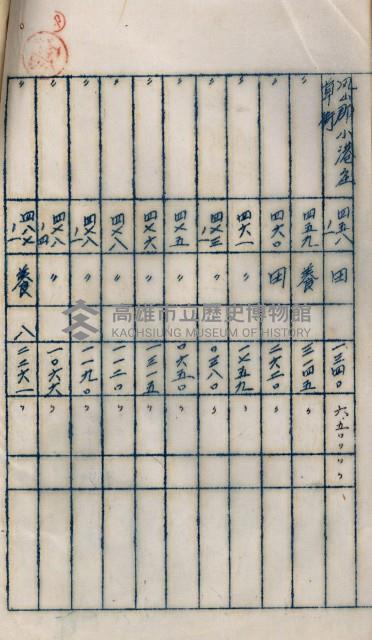 鳳山郡小港庄草衙 四五八ノ一 田 一三四〇 六.五〇〇〇〇
〃 四五九 養 三一四五 〃
〃 四六〇 田 二六二〇 〃
〃 四六一 〃 一七五九 〃
〃 四七三ノ一 〃 〇三八〇 〃
〃 四七五 〃 〇六五〇 〃
〃 四七六 〃 一三一五 〃
〃 四七八 〃 一一二〇 〃
〃 四七八ノ一 〃 一一九〇 〃
〃 四七八ノ四 〃 一〇六六 〃
〃 四八七ノ一 養 八 二二六一 〃
高雄市立歷史博物館
KAOHSIUNG MUSEUM OF HISTORY